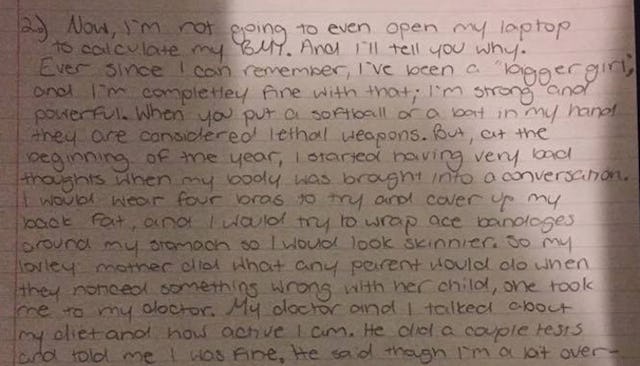 2.) Now, I'm not going to even open my laptop
to calculate my BMI. And I'll tell you why.
Ever since I can remember, I've been a "bigger girl",
and I'm completley fine with that; I'm strong and
powerful. When you put a softball or a bat in my hand
they are considered lethal weapons. But, at the
beginning of the year, I started having very bad
thoughts when my body was brought into a conversation.
I would wear four bras to try and cover up my
back fat, and I would try to wrap ace bandages
around my stomach so I would look skinnier. So my
lovley mother did what any parent would do when
they noticed something wrong with her child, she took
me to my doctor. My doctor and I talked about
my diet and how active I am. He did a couple tests
and told me I was fine. He said though I'm a bit over-